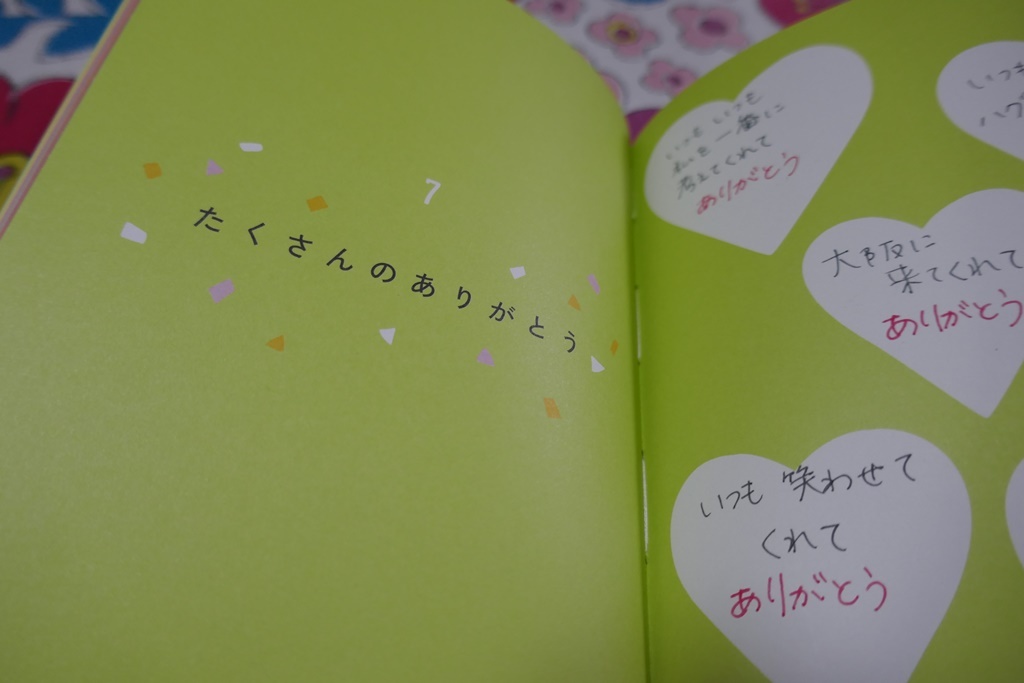 7
たくさんのありがとう
いつも いつも
私を 一番に
考えてくれて
ありがとう
いつも
ハグ
大阪に
来てくれて
ありがとう
いつも 笑わせて
くれて
ありがとう